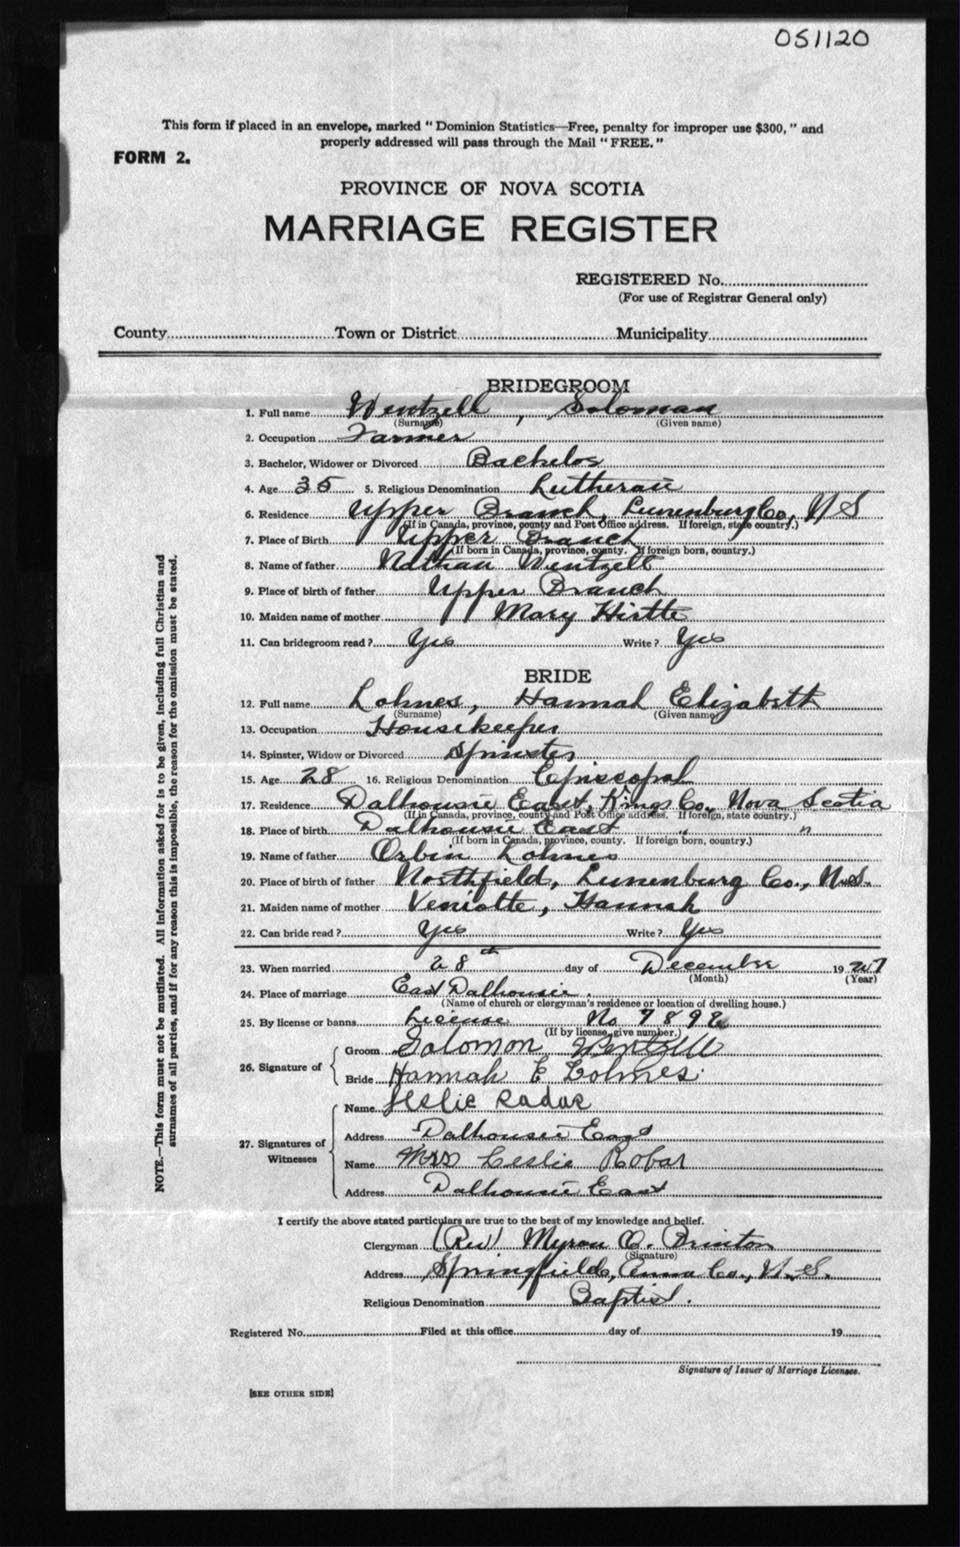 051120
This form if placed in an envelope, marked "Dominion Statistics—Free, penalty for improper use $300," and
properly addressed will pass through the Mail "FREE."
FORM 2.
PROVINCE OF NOVA SCOTIA
MARRIAGE REGISTER
REGISTERED No.
(For use of Registrar General only)
County Town or District Municipality
BRIDEGROOM
1. Full name Wentzell, Soloman
(Surname) (Given name)
2. Occupation Farmer
3. Bachelor, Widower or Divorced Bachelor
4. Age 35 5. Religious Denomination Lutheran
6. Residence Upper Branch, Lunenburg Co, N S
(If in Canada, province, county and Post Office address. If foreign, state country.)
7. Place of Birth Upper Branch
(If born in Canada, province, county. If foreign born, country.)
8. Name of father Nathan Wentzell
9. Place of birth of father Upper Branch
10. Maiden name of mother Mary Hirtle
11. Can bridegroom read? Yes Write? Yes
BRIDE
12. Full name Lohnes, Hannah Elizabeth
(Surname) (Given name)
13. Occupation Housekeeper
14. Spinster, Widow or Divorced Spinster
15. Age 28 16. Religious Denomination Episcopal
17. Residence Dalhousie East, Kings Co., Nova Scotia
(If in Canada, province, county and Post Office address. If foreign, state country.)
18. Place of birth Dalhousie East " "
(If born in Canada, province, county. If foreign born, country.)
19. Name of father Orbin Lohnes
20. Place of birth of father Northfield, Lunenburg Co., N.S.
21. Maiden name of mother Veniotte, Hannah
22. Can bride read? Yes Write? Yes
23. When married 28th day of December 1927
(Month) (Year)
24. Place of marriage East Dalhousie.
(Name of church or clergyman's residence or location of dwelling house.)
25. By license or banns License No 7898
(If by license, give number.)
26. Signature of
Groom Solomon Wentzell
Bride Hannah E Lohnes.
27. Signatures of Witnesses
Name Leslie
Address Dalhousie East
Name Mrs Leslie Robar
Address Dalhousie East
I certify the above stated particulars are true to the best of my knowledge and belief.
Clergyman (Rev) Myron O. Brinton
(Signature)
Address Springfield, Anna Co., N.S.
Religious Denomination Baptist.
Registered No. Filed at this office day of 19
Signature of Issuer of Marriage Licenses.
[SEE OTHER SIDE]
NOTE.—This form must not be mutilated. All information asked for is to be given, including full Christian and
surnames of all parties, and if for any reason this is impossible, the reason for the omission must be stated.